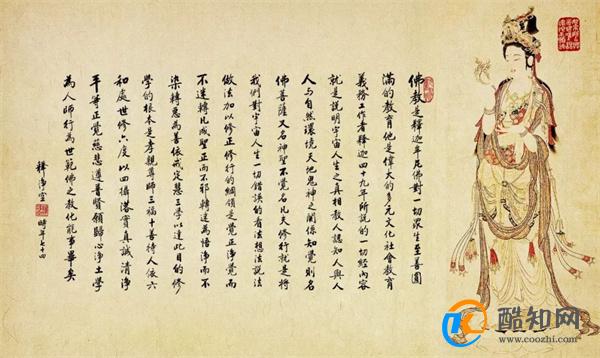 佛教是釋迦牟尼佛對一切眾生至善圓
滿的教育他是偉大的多元文化社會教育
義務工作者釋迦四十九年所說的一切經內容
就是說明宇宙人生之真相教人認知人與人
人與自然環境天地鬼神之關係知覺則名
佛菩薩又名神聖不覺名凡夫修行就是將
我們對宇宙人生一切錯誤的看法想法說法
做法加以修正修行的綱領是覺正淨覺而
不迷轉凡成聖正而不邪轉迷為悟淨而不
染轉惡為善依戒定慧三學以達此目的修
學的根本是孝親尊師三福十善待人依六
和處世修六度以四攝落實真誠清淨
平等正覺慈悲遵普賢願歸心淨土學
為人師行為世範佛之教化能事畢矣
釋淨空
時年七十四
酷知网
www.coozhi.com